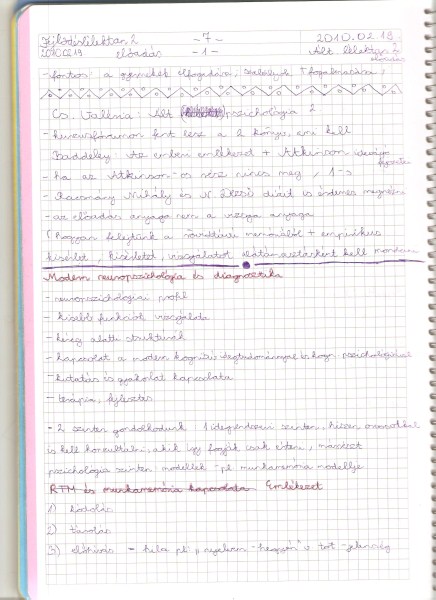 Fejlődéslélektan 2 - 7 - 2010.02.19.
2010.02.19 előadás - 1 - Ált. lélektan 2 előadás
- fontos: a gyerekek elfogadása, szabályok + fogalmazására
Cs. Vallna: Ált. pszichológia 2
- kurzusfórumon fent lesz a 2 könyv, ami kell
Baddeley Az emberi emlékezet + Atkinson
- ha az Atkinson-os rész nincs meg, 1-s
- Racsmány Mihály és N. Dezső diáit is érdemes megnézni
- az előadás anyaga nem a vizsga anyaga
(Hogyan felejtünk a rövidtávú memóriából + empirikus
kísérlet, kísérletet, vizsgálatot alátámasztásként kell mondani
Modern neuropszichológia és diagnosztika
- neuropszichológiai profil
- kisebb funkciók vizsgálata
- kéreg alatti struktúrák
- kapcsolat a modern kognitív idegtudománnyal és kogn. pszichológiával
- kutatás és gyakorlat kapcsolata
- terápia, fejlesztés
- 2 szinten gondolkodunk 1 idegrendszeri szinten, hiszen orvosokkal
is kell konzultálni, akik így fogják csak érteni, másrészt
pszichológia szinten modellek - pl. munkamemória modellje
RTM és munkamemória kapcsolata Emlékezet
1) kódolás
2) tárolás
3) előhívás - hiba pl. „nyelvem hegyén” v. tot-jelenség